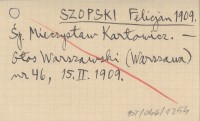 SZOPSKI Felicjan 1909.
Śp. Mieczysław Karłowicz. —
Głos Warszawski (Warszawa)
nr 46, 15. II. 1909.